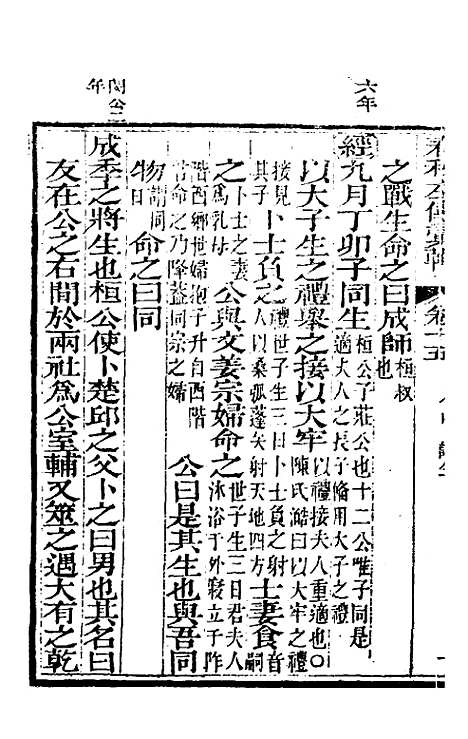 六年
之戰生命之曰成師桓叔也
經九月丁卯子同生桓公子莊公也十二公唯子同是適夫人之長子備用大子之禮
以大子生之禮舉之接以大牢以禮接夫人重適也〇陳氏澔曰以大牢之禮
接見其子卜士負之禮世子生三日卜士負之射人以桑弧蓬矢射天地四方士妻食音嗣
之卜士之妻爲乳母公與文姜宗婦命之世子生三日君夫人沐浴于外寢立于阼
階西鄉世婦抱子升自西階君命之乃降蓋同宗之婦公曰是其生也與吾同
物謂同日命之曰同
閔公二年
成季之將生也桓公使卜楚邱之父卜之曰男也其名曰
友在公之右間於兩社爲公室輔又筮之遇大有之乾